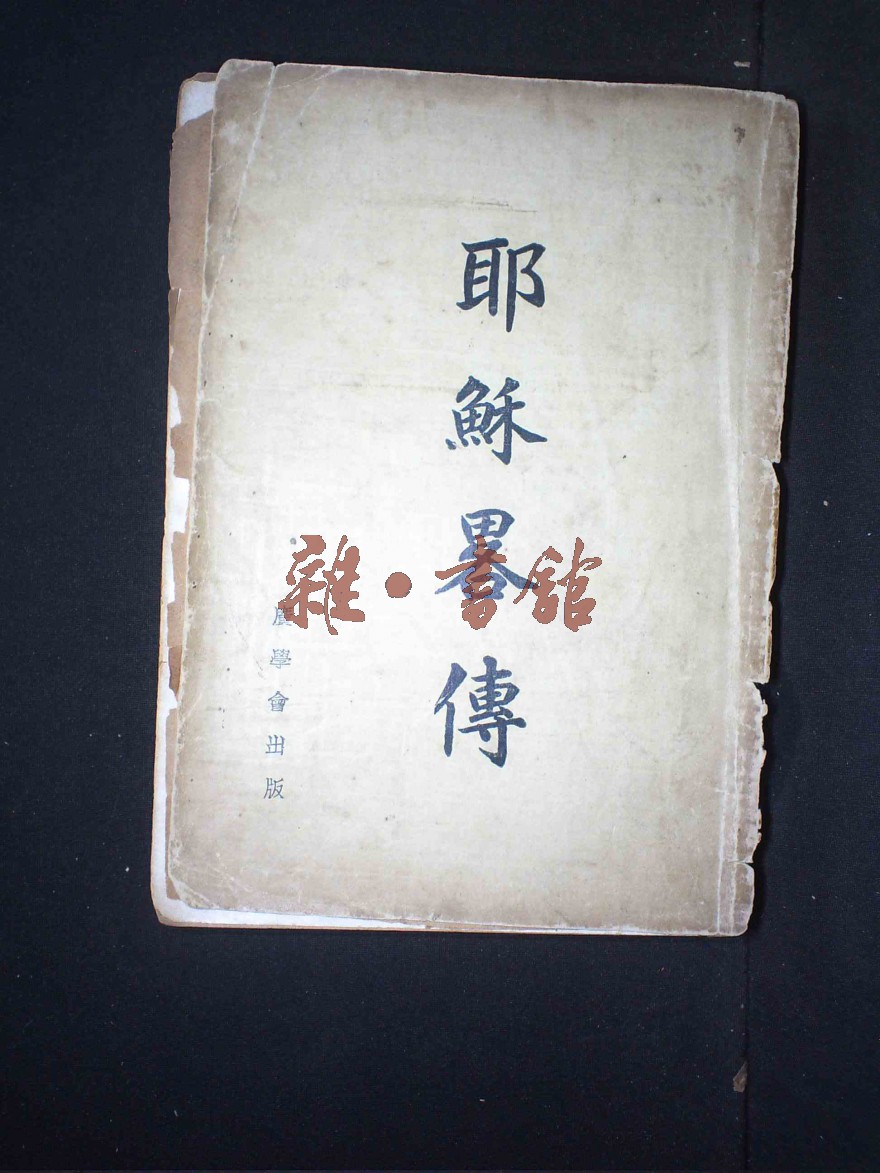 耶穌畧傳
廣學會出版
雜·書舘